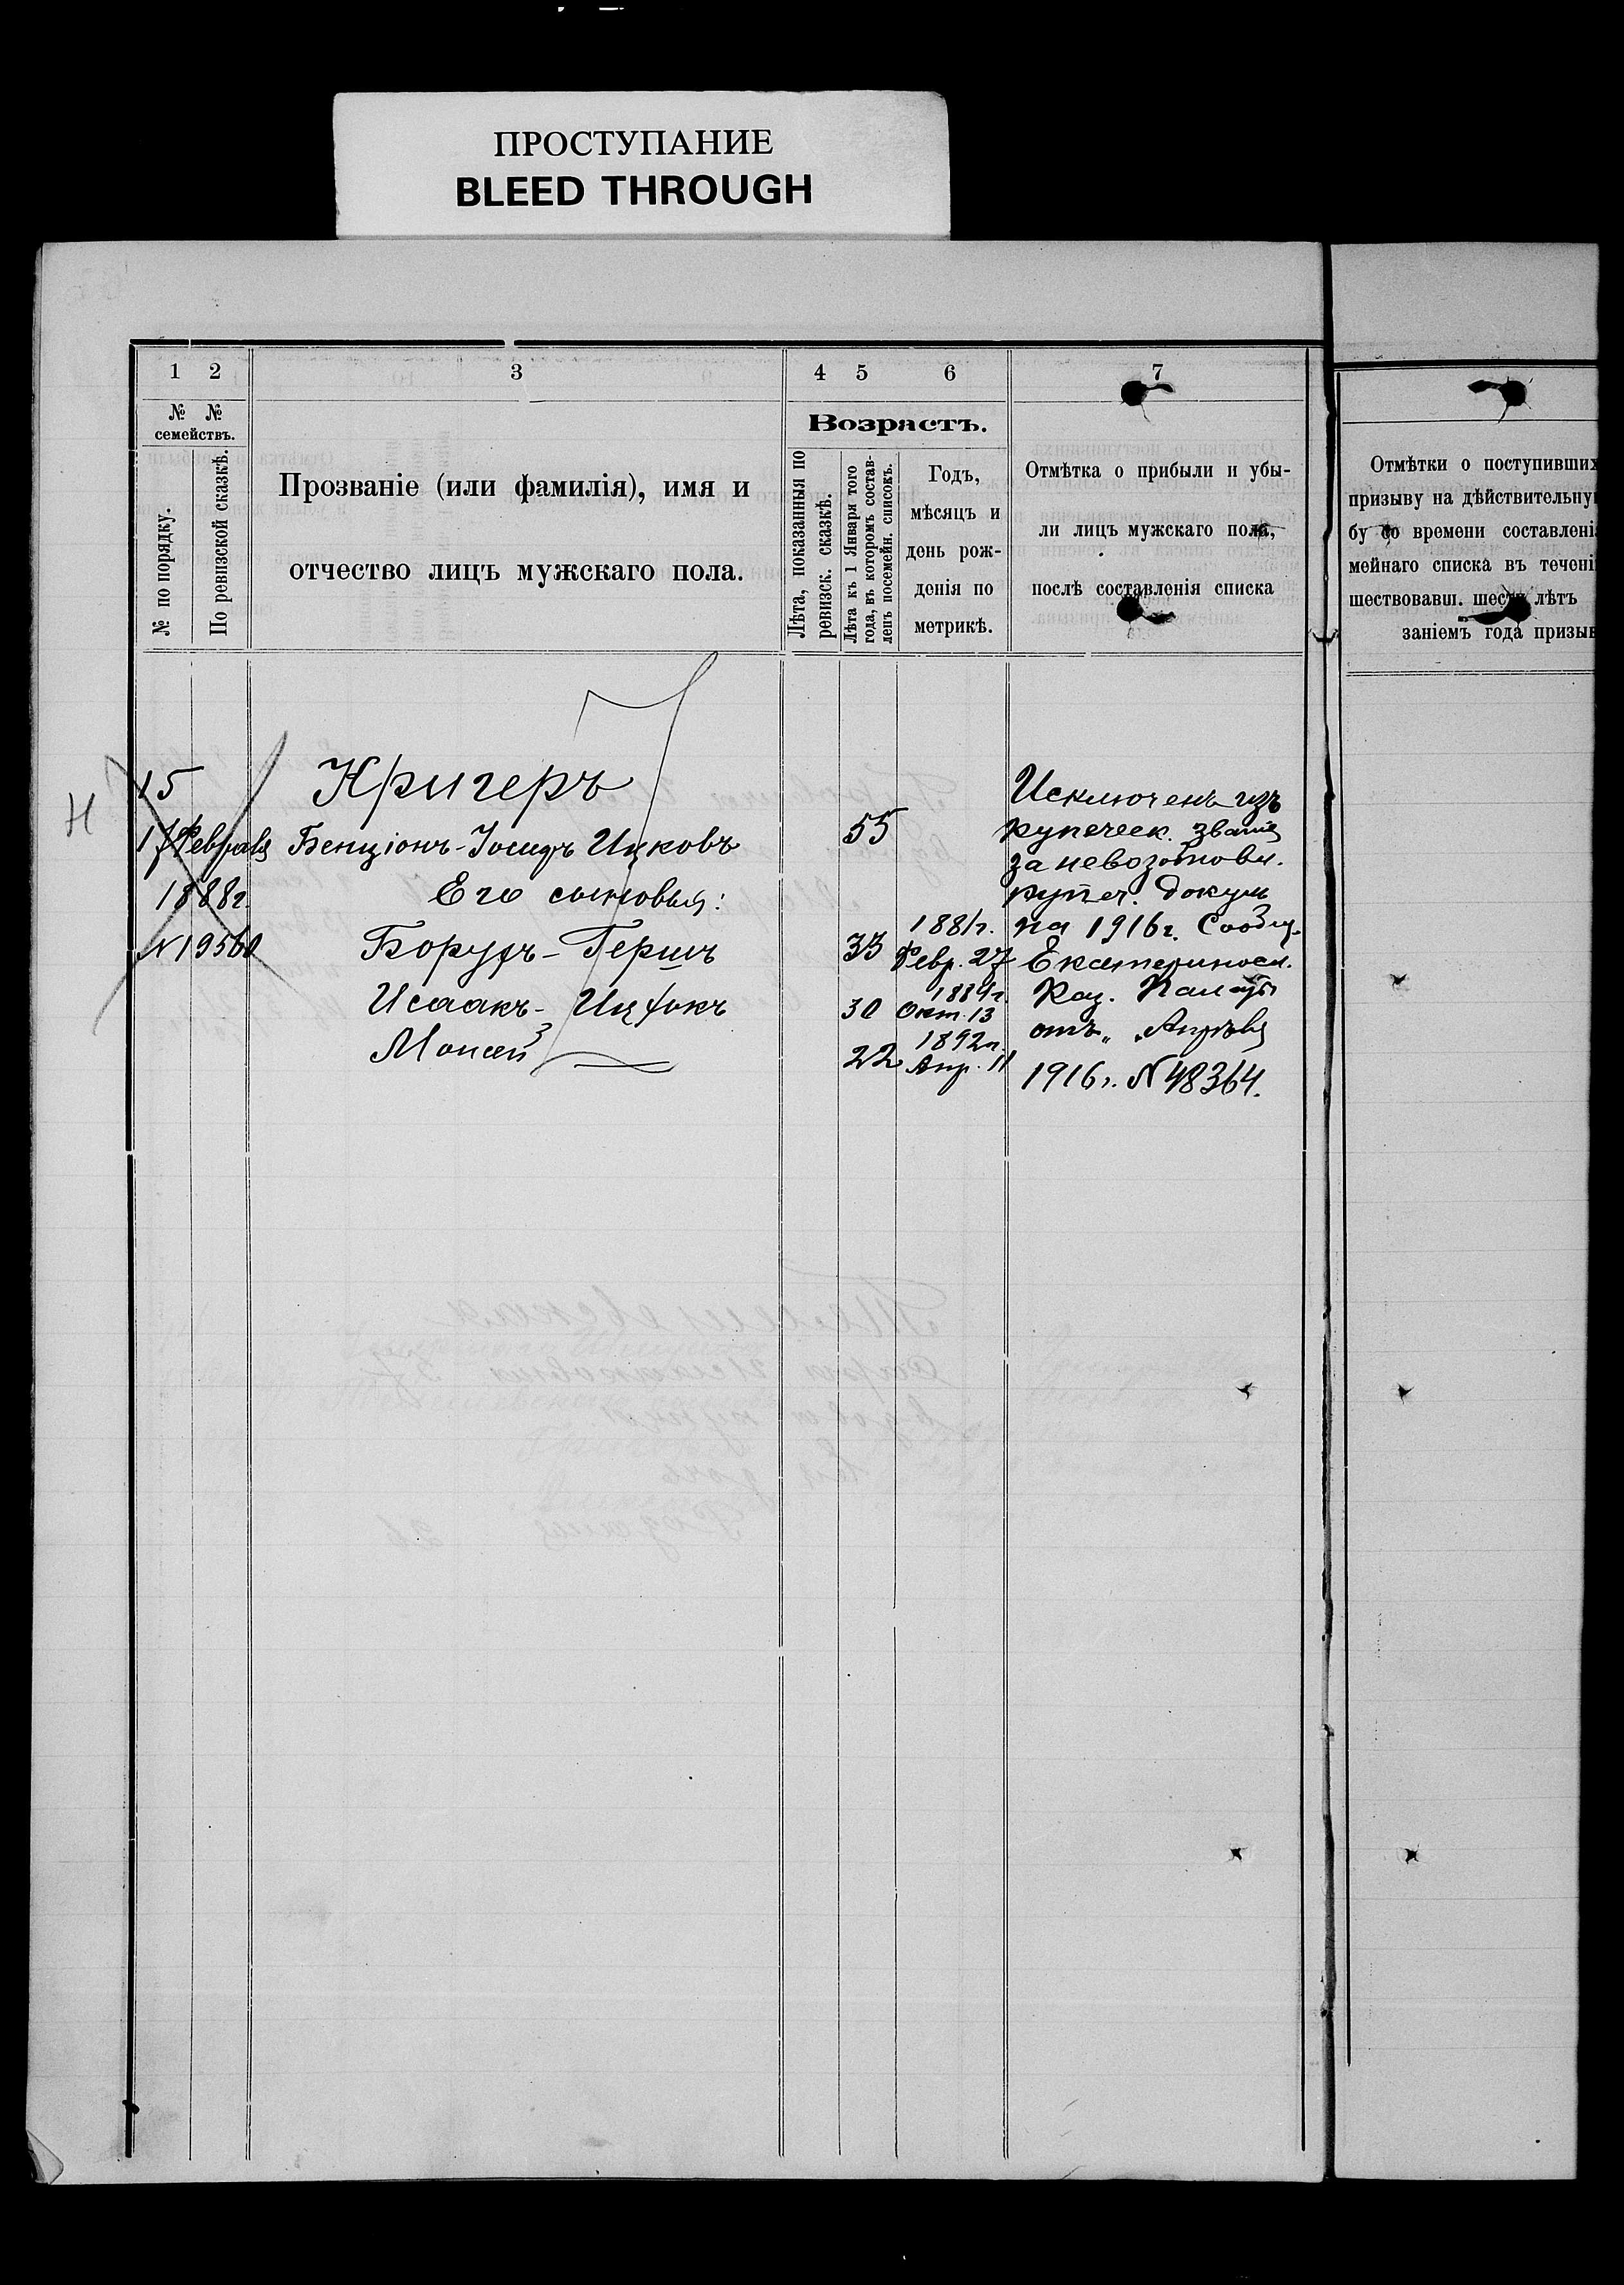 ПРОСТУПАНИЕ
BLEED THROUGH
1 2 3 4 5 6 7
№ №
семействъ.
№ по порядку.
По ревизской сказкѣ.
Прозваніе (или фамилія), имя и
отчество лицъ мужскаго пола.
Возрастъ.
Лѣта, показанныя по
ревизск. сказкѣ.
Лѣта къ 1 Января того
года, въ которомъ состав-
ленъ посемейн. списокъ.
Годъ,
мѣсяцъ и
день рож-
денія по
метрикѣ.
Отмѣтка о прибыли и убы-
ли лицъ мужскаго пола,
послѣ составленія списка
Отмѣтки о поступивших
призыву на дѣйствительну
бу со времени составлені
мейнаго списка въ течені
шествовавш. шести лѣтъ
заніемъ года призыв
Н
15
17 Февраля
1888г.
№ 19560
Кригеръ
Бенціонъ-Іосифъ Ицковъ 55
Его сыновья:
Борухъ-Гершъ 33 1881г. Февр. 27
Исаакъ-Ицхокъ 30 1884г. Окт. 13
Моисей 22 1892г. Апр. 11
Исключенъ изъ
купеческ. званія
за невозобновл.
купеч. докум
на 1916г. Сообщ.
Екатериносл.
Каз. Палаты
отъ „ „ Апрѣля
1916г. № 48364.